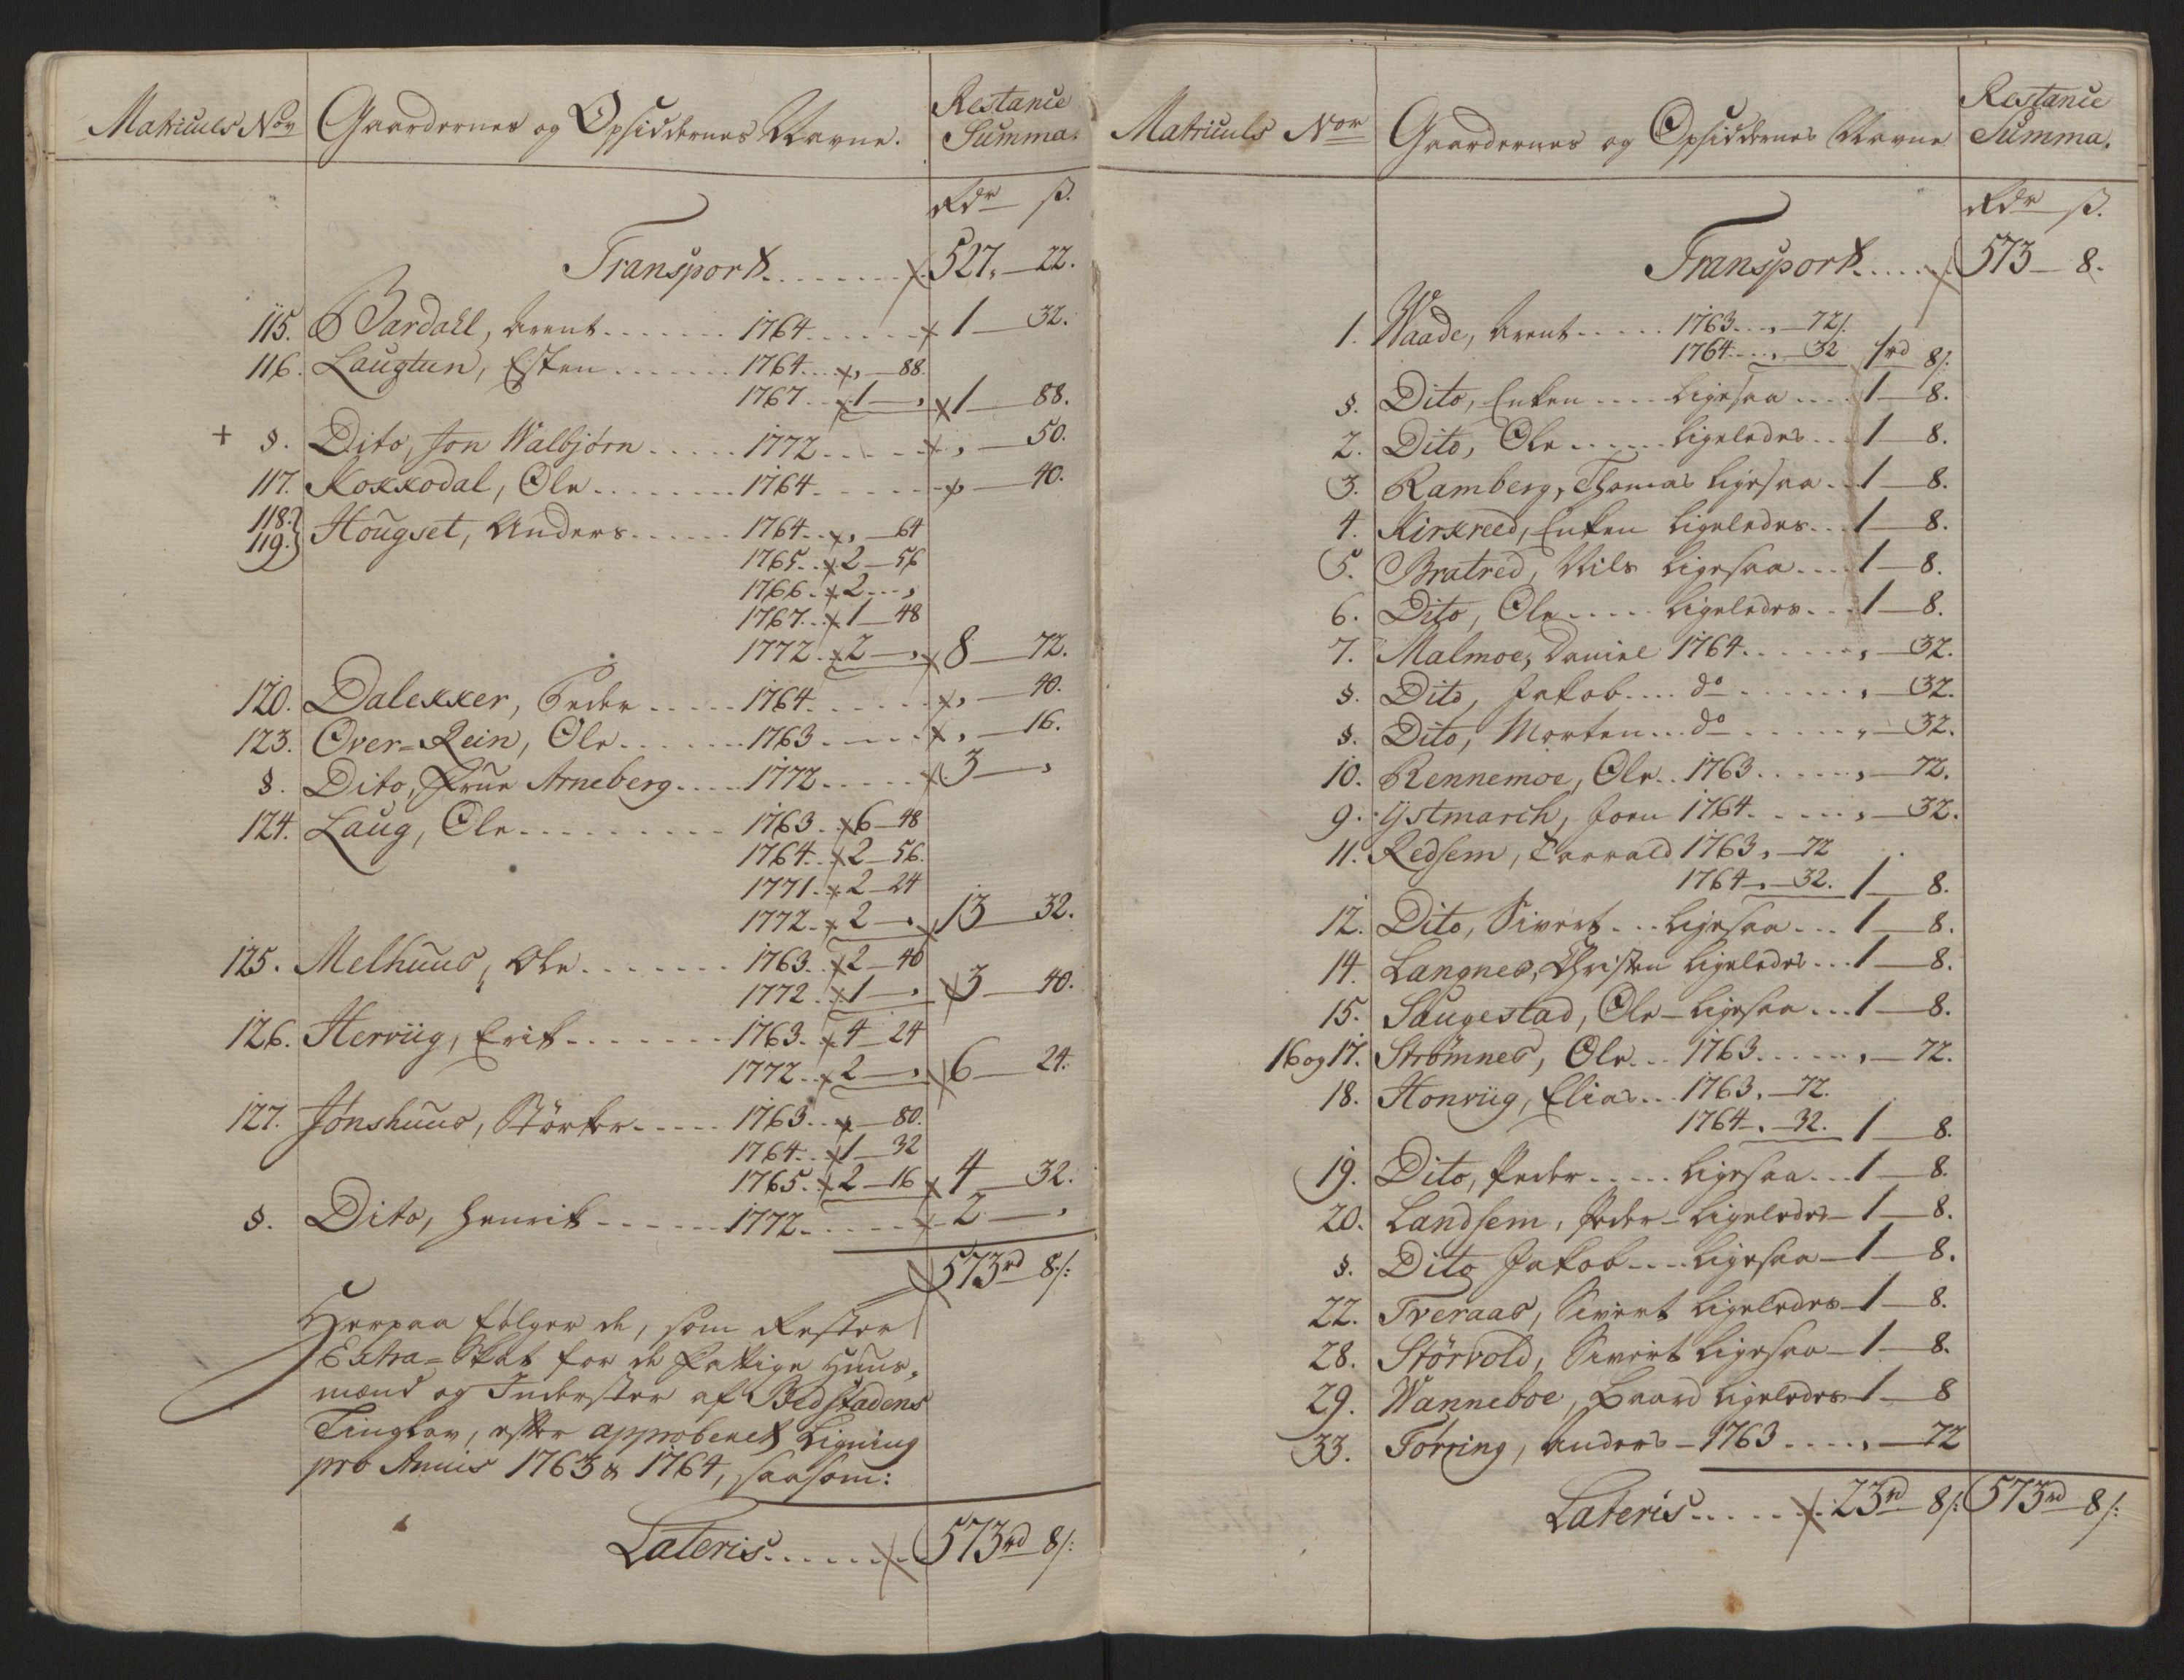 Matriculs Nor Gaardernes og Opsiddernes Navne. Restance Summa.
Rdr ß.
Transport. . . . . . . . 527. — 22.
115. Bardahl, Arent . . . . . . . 1764 . . . . . . 1 — 32.
116. Laugtun, Esten . . . . . . . 1764 . . . , — 88.
1767 . . 1 — , 1 — 88.
+ §. Dito, Jon Walbjørn . . . . . 1772 . . . . . , — 50.
117. Kokkodal, Ole . . . . . . . . 1764 . . . . . . — 40.
118. 119. } Hougset, Anders . . . . . . 1764 . . , — 64
1765 . . 2 — 56
1766 . . 2 . . . ,
1767 . . 1 — 48
1772 . . 2 — , 8 — 72.
120. Dalekker, Peder . . . . . 1764 . . . . . . , — 40.
123. Over-Rein, Ole . . . . . . 1763 . . . . . , — 16.
§. Dito, Frue Arneberg . . . . . 1772 . . . . . 3 — ,
124. Laug, Ole . . . . . . . . . 1763 . . 6 — 48
1764 . . 2 — 56.
1771 . . 2 — 24
1772 . . 2 — , 13 — 32.
125. Melhuus, Ole . . . . . . . 1763 . . 2 — 40
1772 . . 1 — , 3 — 40.
126. Herviig, Erik . . . . . . . 1763 . . 4 — 24
1772 . . 2 — , 6 — 24.
127. Jonshuus, Størker . . . . . 1763 . . — 80.
1764 . . 1 — 32
1765 . . 2 — 16 4 — 32.
§. Dito, Henrik . . . . . . 1772 . . . . . 2 — ,
573rd 8/:
Herpaa følger de, som Rester
Extra-Skat for de fattige Huus-
mænd og Inderster af Bedstadens
Tinglav, efter approberet Ligning
pro Annis 1763 & 1764, saasom:
Lateris . . . . . . . 573rd 8/:
Matriculs Nor Gaardernes og Opsiddernes Navne Restance Summa.
Rdr ß.
Transport . . . . . 573 — 8.
1. Waade, Arent . . . . . 1763 . . . , — 72/.
1764 . . . , — 32 1rd 8/:
§. Dito, Enken . . . . ligesaa . . . . 1 — 8.
2. Dito, Ole . . . . . ligeledes . . . 1 — 8.
3. Ramberg, Thomas ligesaa . . 1 — 8.
4. Kirkreed, Enken ligeledes . . . 1 — 8.
5. Bratred, Nils ligesaa . . . . 1 — 8.
6. Dito, Ole . . . . . ligeledes . . . 1 — 8.
7. Malmoe, Daniel 1764 . . . . . . , — 32.
§. Dito, Jakob . . . . do . . . . . . , — 32.
§. Dito, Morten . . . do . . . . . , — 32.
10. Rennemoe, Ole . . 1763 . . . . . , — 72.
9. Ystmarch, Joen 1764 . . . . . , — 32.
11. Redsem, Tarrald 1763 , — 72
1764 — , — 32. 1 — 8.
12. Dito, Sivert . . . ligesaa . . . 1 — 8.
14. Langnes, Christen ligeledes . . . 1 — 8.
15. Saugestad, Ole — ligesaa . . . 1 — 8.
16 og 17. Strømnes, Ole . . . 1763 . . . . . , — 72.
18. Honviig, Elias . . . 1763 , — 72.
1764 — , — 32. 1 — 8.
19. Dito, Peder . . . . . ligesaa . . . 1 — 8.
20. Landsem, Peder — ligeledes — 1 — 8.
§. Dito Jakob . . . . ligesaa — 1 — 8.
22. Tveraas, Sivert ligeledes — 1 — 8.
28. Størvold, Sivert ligesaa — 1 — 8.
29. Wanneboe, Baard ligeledes 1 — 8
33. Torring, Anders — 1763 . . . . , — 72
Lateris . . . . . . 23rd 8/: 573rd 8/: